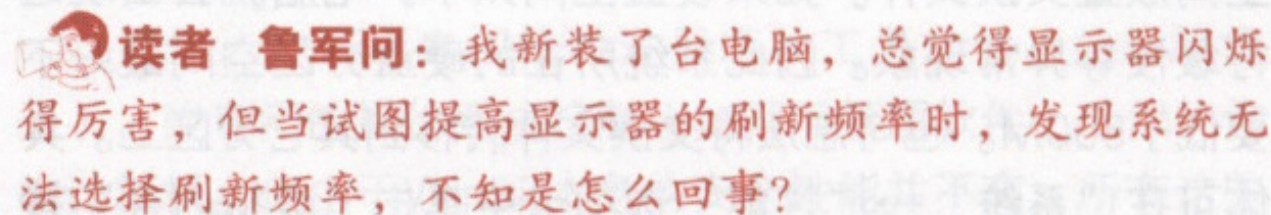 读者 鲁军问：我新装了台电脑，总觉得显示器闪烁
得厉害，但当试图提高显示器的刷新频率时，发现系统无
法选择刷新频率，不知是怎么回事？